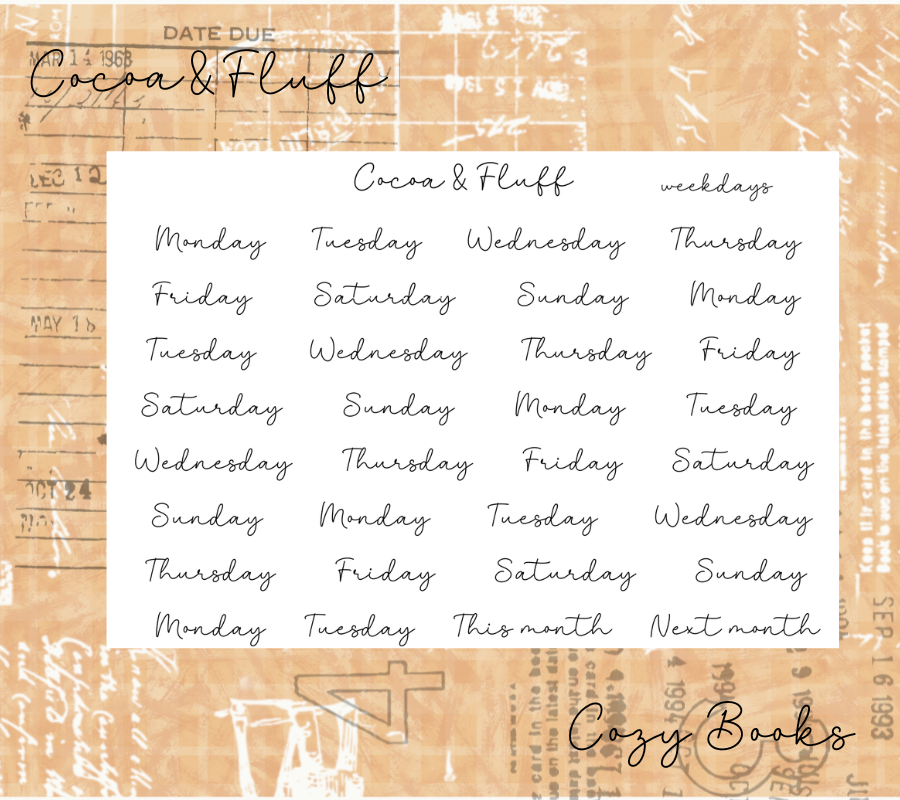 DATE DUE
MAR 14 1968
Cocoa & Fluff
DEC 12
MAY 18
OCT 24
Cocoa & Fluff weekdays
Monday Tuesday Wednesday Thursday
Friday Saturday Sunday Monday
Tuesday Wednesday Thursday Friday
Saturday Sunday Monday Tuesday
Wednesday Thursday Friday Saturday
Sunday Monday Tuesday Wednesday
Thursday Friday Saturday Sunday
Monday Tuesday This month Next month
Keep this card in the book pocket
Book is due on the latest date stamped
SEP 16 1993
4
Cozy Books